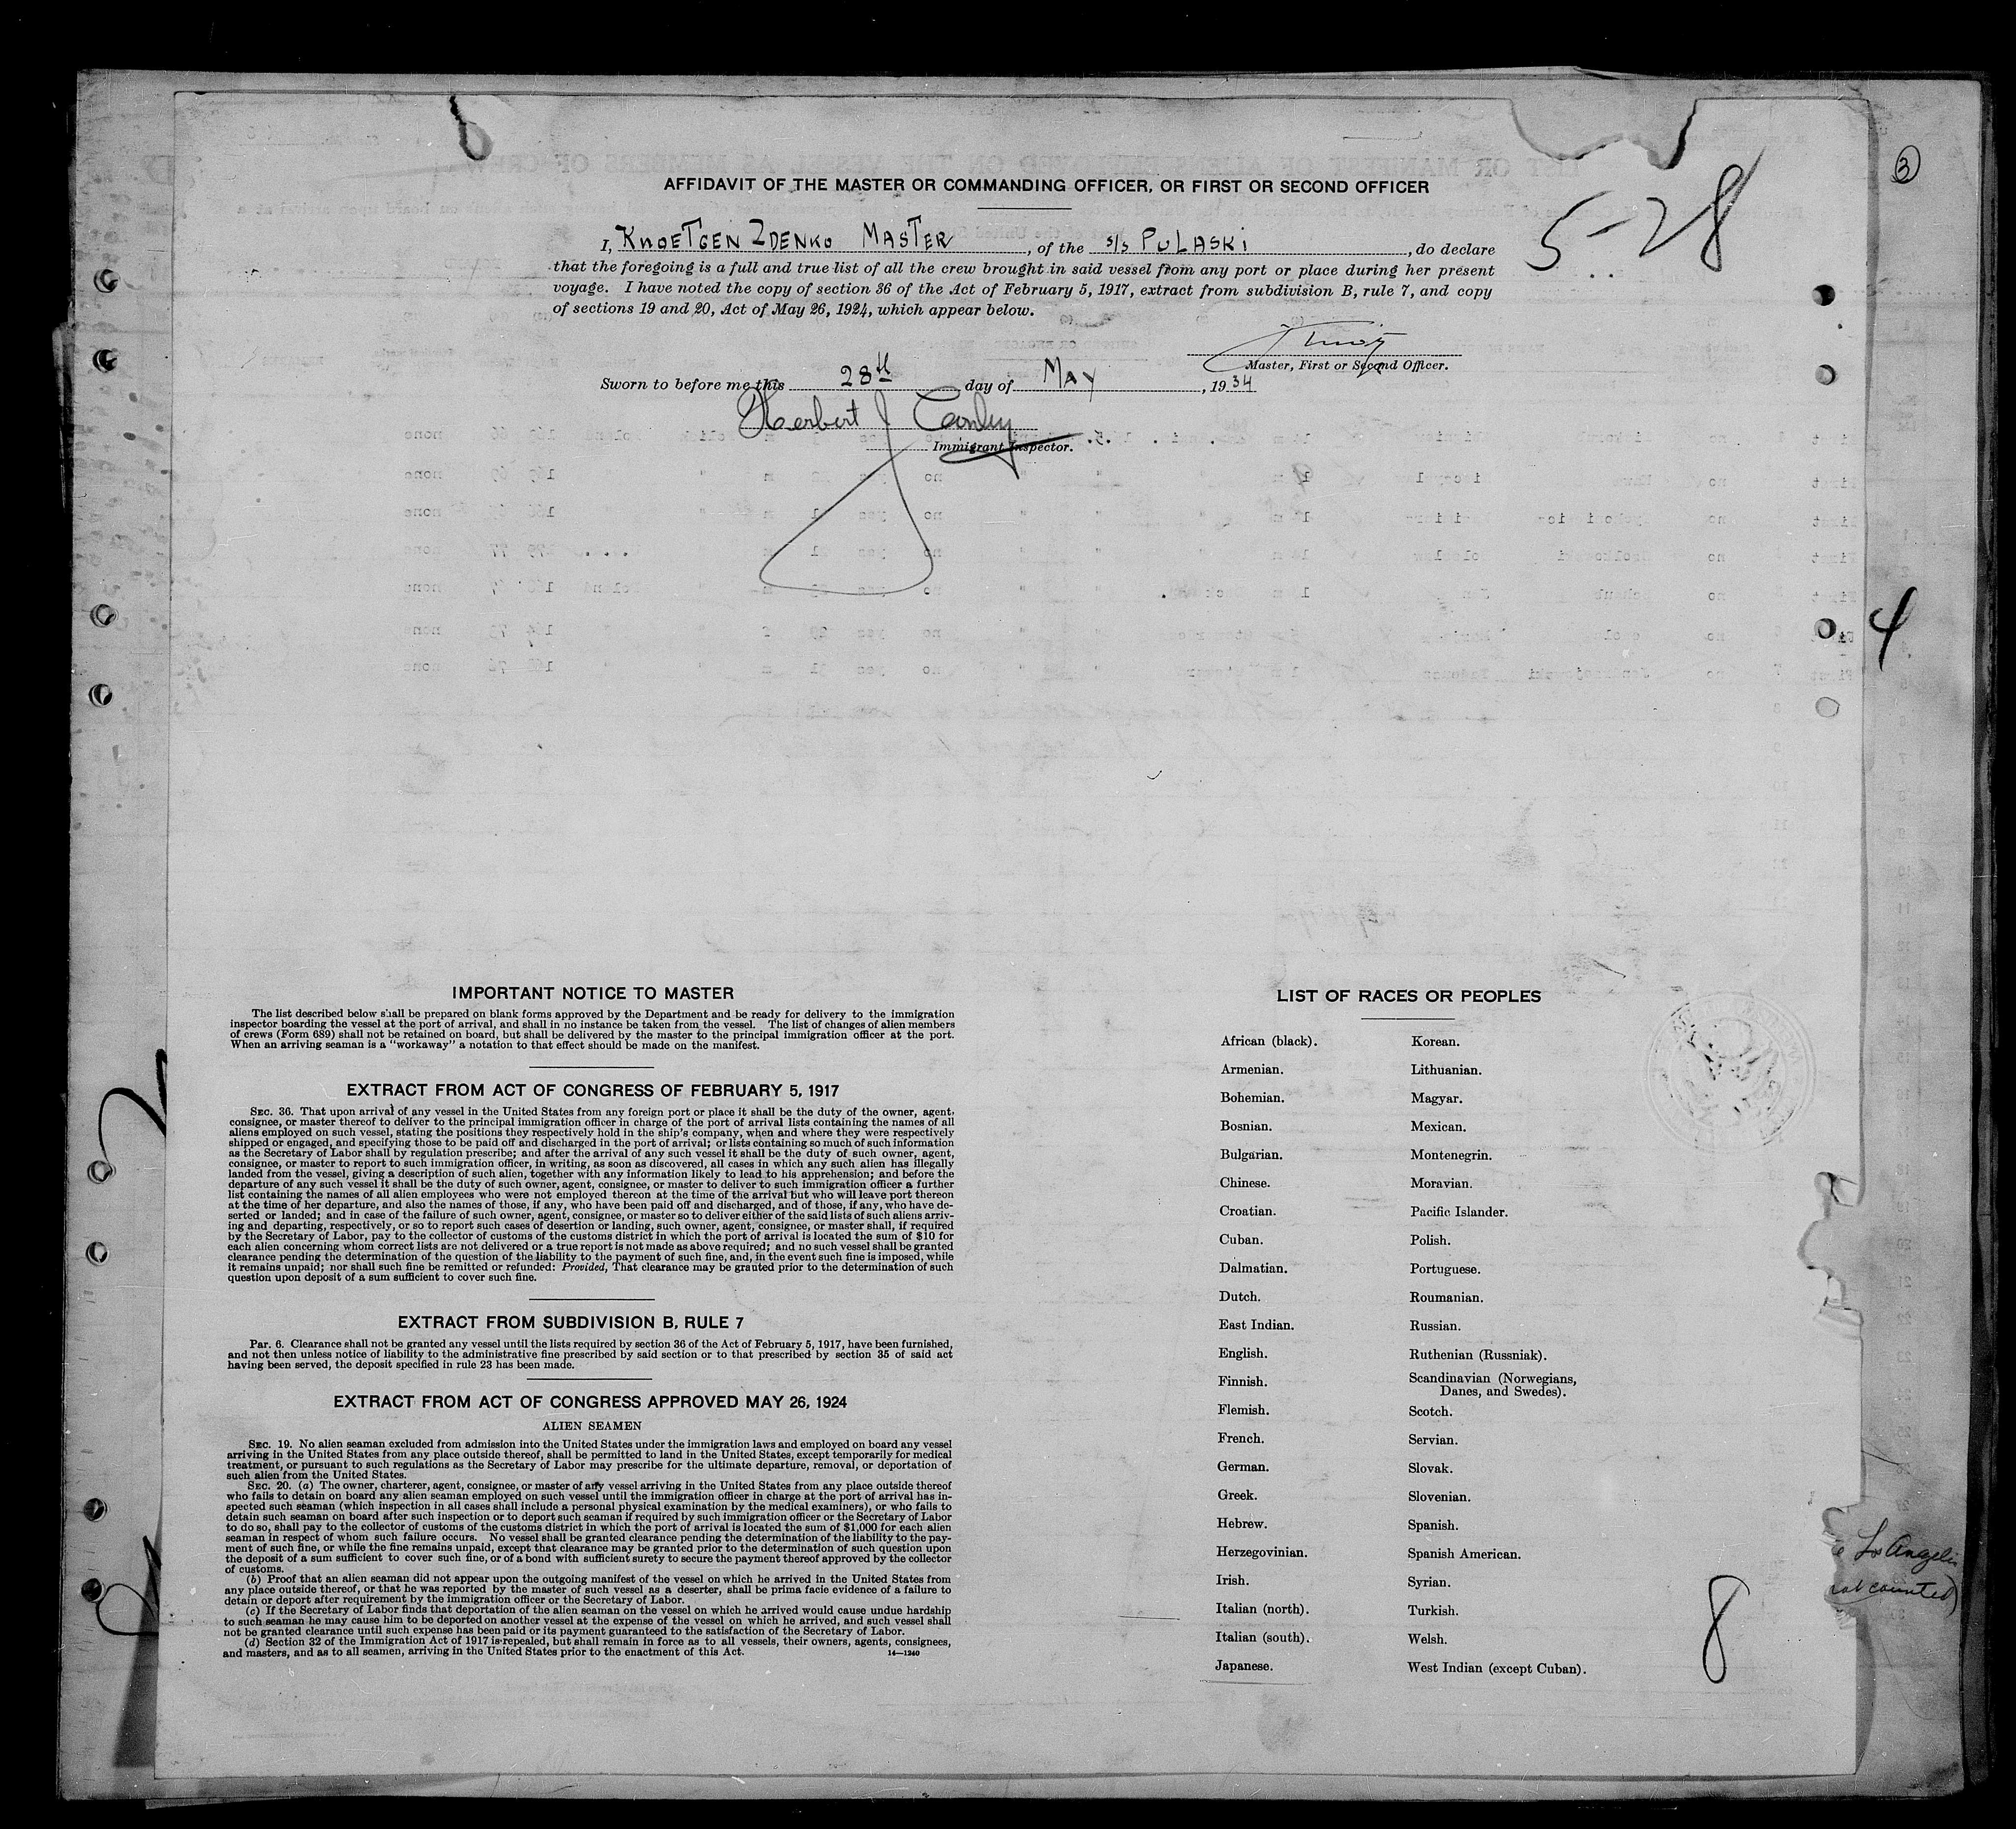 AFFIDAVIT OF THE MASTER OR COMMANDING OFFICER, OR FIRST OR SECOND OFFICER
3
5-28
I, KNOETGEN ZDENKO MASTER, of the S/S PULASKI, do declare
that the foregoing is a full and true list of all the crew brought in said vessel from any port or place during her present
voyage. I have noted the copy of section 36 of the Act of February 5, 1917, extract from subdivision B, rule 7, and copy
of sections 19 and 20, Act of May 26, 1924, which appear below.
Master, First or Second Officer.
Sworn to before me this 28th day of MAY, 1934
Herbert J Conley
Immigrant Inspector.
4
IMPORTANT NOTICE TO MASTER
The list described below shall be prepared on blank forms approved by the Department and be ready for delivery to the immigration
inspector boarding the vessel at the port of arrival, and shall in no instance be taken from the vessel. The list of changes of alien members
of crews (Form 689) shall not be retained on board, but shall be delivered by the master to the principal immigration officer at the port.
When an arriving seaman is a "workaway" a notation to that effect should be made on the manifest.
EXTRACT FROM ACT OF CONGRESS OF FEBRUARY 5, 1917
SEC. 36. That upon arrival of any vessel in the United States from any foreign port or place it shall be the duty of the owner, agent,
consignee, or master thereof to deliver to the principal immigration officer in charge of the port of arrival lists containing the names of all
aliens employed on such vessel, stating the positions they respectively hold in the ship's company, when and where they were respectively
shipped or engaged, and specifying those to be paid off and discharged in the port of arrival; or lists containing so much of such information
as the Secretary of Labor shall by regulation prescribe; and after the arrival of any such vessel it shall be the duty of such owner, agent,
consignee, or master to report to such immigration officer, in writing, as soon as discovered, all cases in which any such alien has illegally
landed from the vessel, giving a description of such alien, together with any information likely to lead to his apprehension; and before the
departure of any such vessel it shall be the duty of such owner, agent, consignee, or master to deliver to such immigration officer a further
list containing the names of all alien employees who were not employed thereon at the time of the arrival but who will leave port thereon
at the time of her departure, and also the names of those, if any, who have been paid off and discharged, and of those, if any, who have de-
serted or landed; and in case of the failure of such owner, agent, consignee, or master so to deliver either of the said lists of such aliens arriv-
ing and departing, respectively, or so to report such cases of desertion or landing, such owner, agent, consignee, or master shall, if required
by the Secretary of Labor, pay to the collector of customs of the customs district in which the port of arrival is located the sum of $10 for
each alien concerning whom correct lists are not delivered or a true report is not made as above required; and no such vessel shall be granted
clearance pending the determination of the question of the liability to the payment of such fine, and, in the event such fine is imposed, while
it remains unpaid; nor shall such fine be remitted or refunded: Provided, That clearance may be granted prior to the determination of such
question upon deposit of a sum sufficient to cover such fine.
EXTRACT FROM SUBDIVISION B, RULE 7
Par. 6. Clearance shall not be granted any vessel until the lists required by section 36 of the Act of February 5, 1917, have been furnished,
and not then unless notice of liability to the administrative fine prescribed by said section or to that prescribed by section 35 of said act
having been served, the deposit specified in rule 23 has been made.
EXTRACT FROM ACT OF CONGRESS APPROVED MAY 26, 1924
ALIEN SEAMEN
SEC. 19. No alien seaman excluded from admission into the United States under the immigration laws and employed on board any vessel
arriving in the United States from any place outside thereof, shall be permitted to land in the United States, except temporarily for medical
treatment, or pursuant to such regulations as the Secretary of Labor may prescribe for the ultimate departure, removal, or deportation of
such alien from the United States.
SEC. 20. (a) The owner, charterer, agent, consignee, or master of any vessel arriving in the United States from any place outside thereof
who fails to detain on board any alien seaman employed on such vessel until the immigration officer in charge at the port of arrival has in-
spected such seaman (which inspection in all cases shall include a personal physical examination by the medical examiners), or who fails to
detain such seaman on board after such inspection or to deport such seaman if required by such immigration officer or the Secretary of Labor
to do so, shall pay to the collector of customs of the customs district in which the port of arrival is located the sum of $1,000 for each alien
seaman in respect of whom such failure occurs. No vessel shall be granted clearance pending the determination of the liability to the pay-
ment of such fine, or while the fine remains unpaid, except that clearance may be granted prior to the determination of such question upon
the deposit of a sum sufficient to cover such fine, or of a bond with sufficient surety to secure the payment thereof approved by the collector
of customs.
(b) Proof that an alien seaman did not appear upon the outgoing manifest of the vessel on which he arrived in the United States from
any place outside thereof, or that he was reported by the master of such vessel as a deserter, shall be prima facie evidence of a failure to
detain or deport after requirement by the immigration officer or the Secretary of Labor.
(c) If the Secretary of Labor finds that deportation of the alien seaman on the vessel on which he arrived would cause undue hardship
to such seaman he may cause him to be deported on another vessel at the expense of the vessel on which he arrived, and such vessel shall
not be granted clearance until such expense has been paid or its payment guaranteed to the satisfaction of the Secretary of Labor.
(d) Section 32 of the Immigration Act of 1917 is repealed, but shall remain in force as to all vessels, their owners, agents, consignees,
and masters, and as to all seamen, arriving in the United States prior to the enactment of this Act.
14—1240
LIST OF RACES OR PEOPLES
African (black).
Armenian.
Bohemian.
Bosnian.
Bulgarian.
Chinese.
Croatian.
Cuban.
Dalmatian.
Dutch.
East Indian.
English.
Finnish.
Flemish.
French.
German.
Greek.
Hebrew.
Herzegovinian.
Irish.
Italian (north).
Italian (south).
Japanese.
Korean.
Lithuanian.
Magyar.
Mexican.
Montenegrin.
Moravian.
Pacific Islander.
Polish.
Portuguese.
Roumanian.
Russian.
Ruthenian (Russniak).
Scandinavian (Norwegians,
Danes, and Swedes).
Scotch.
Servian.
Slovak.
Slovenian.
Spanish.
Spanish American.
Syrian.
Turkish.
Welsh.
West Indian (except Cuban).
counted)
8